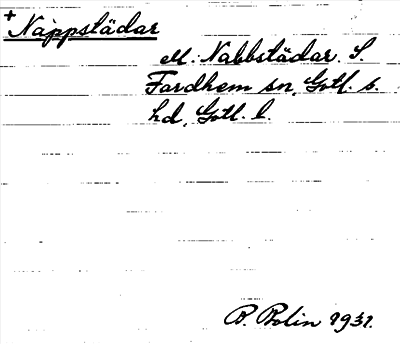 + Nappstädar
el. Nabbstädar. S.
Fardhem sn, Gotl. s.
hd, Gotl. l.
B. Bolin 1931.